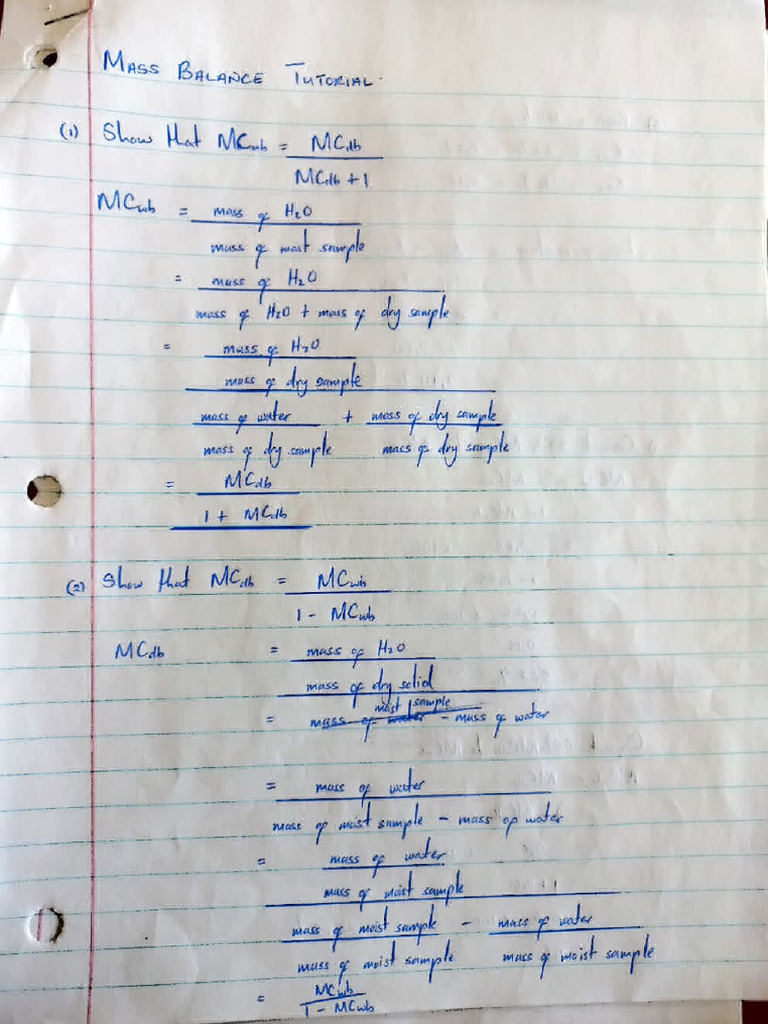 MASS BALANCE TUTORIAL.
(1) Show that MCwb = MCdb
MCdb + 1
MCwb = mass of H2O
mass of moist sample
= mass of H2O
mass of H2O + mass of dry sample
= mass of H2O
mass of dry sample
mass of water + mass of dry sample
mass of dry sample mass of dry sample
= MCdb
1 + MCdb
(2) Show that MCdb = MCwb
1 - MCwb
MCdb = mass of H2O
mass of dry solid
moist sample
= mass of water - mass of water
= mass of water
mass of moist sample - mass of water
= mass of water
mass of moist sample
mass of moist sample - mass of water
mass of moist sample mass of moist sample
= MCwb
1 - MCwb